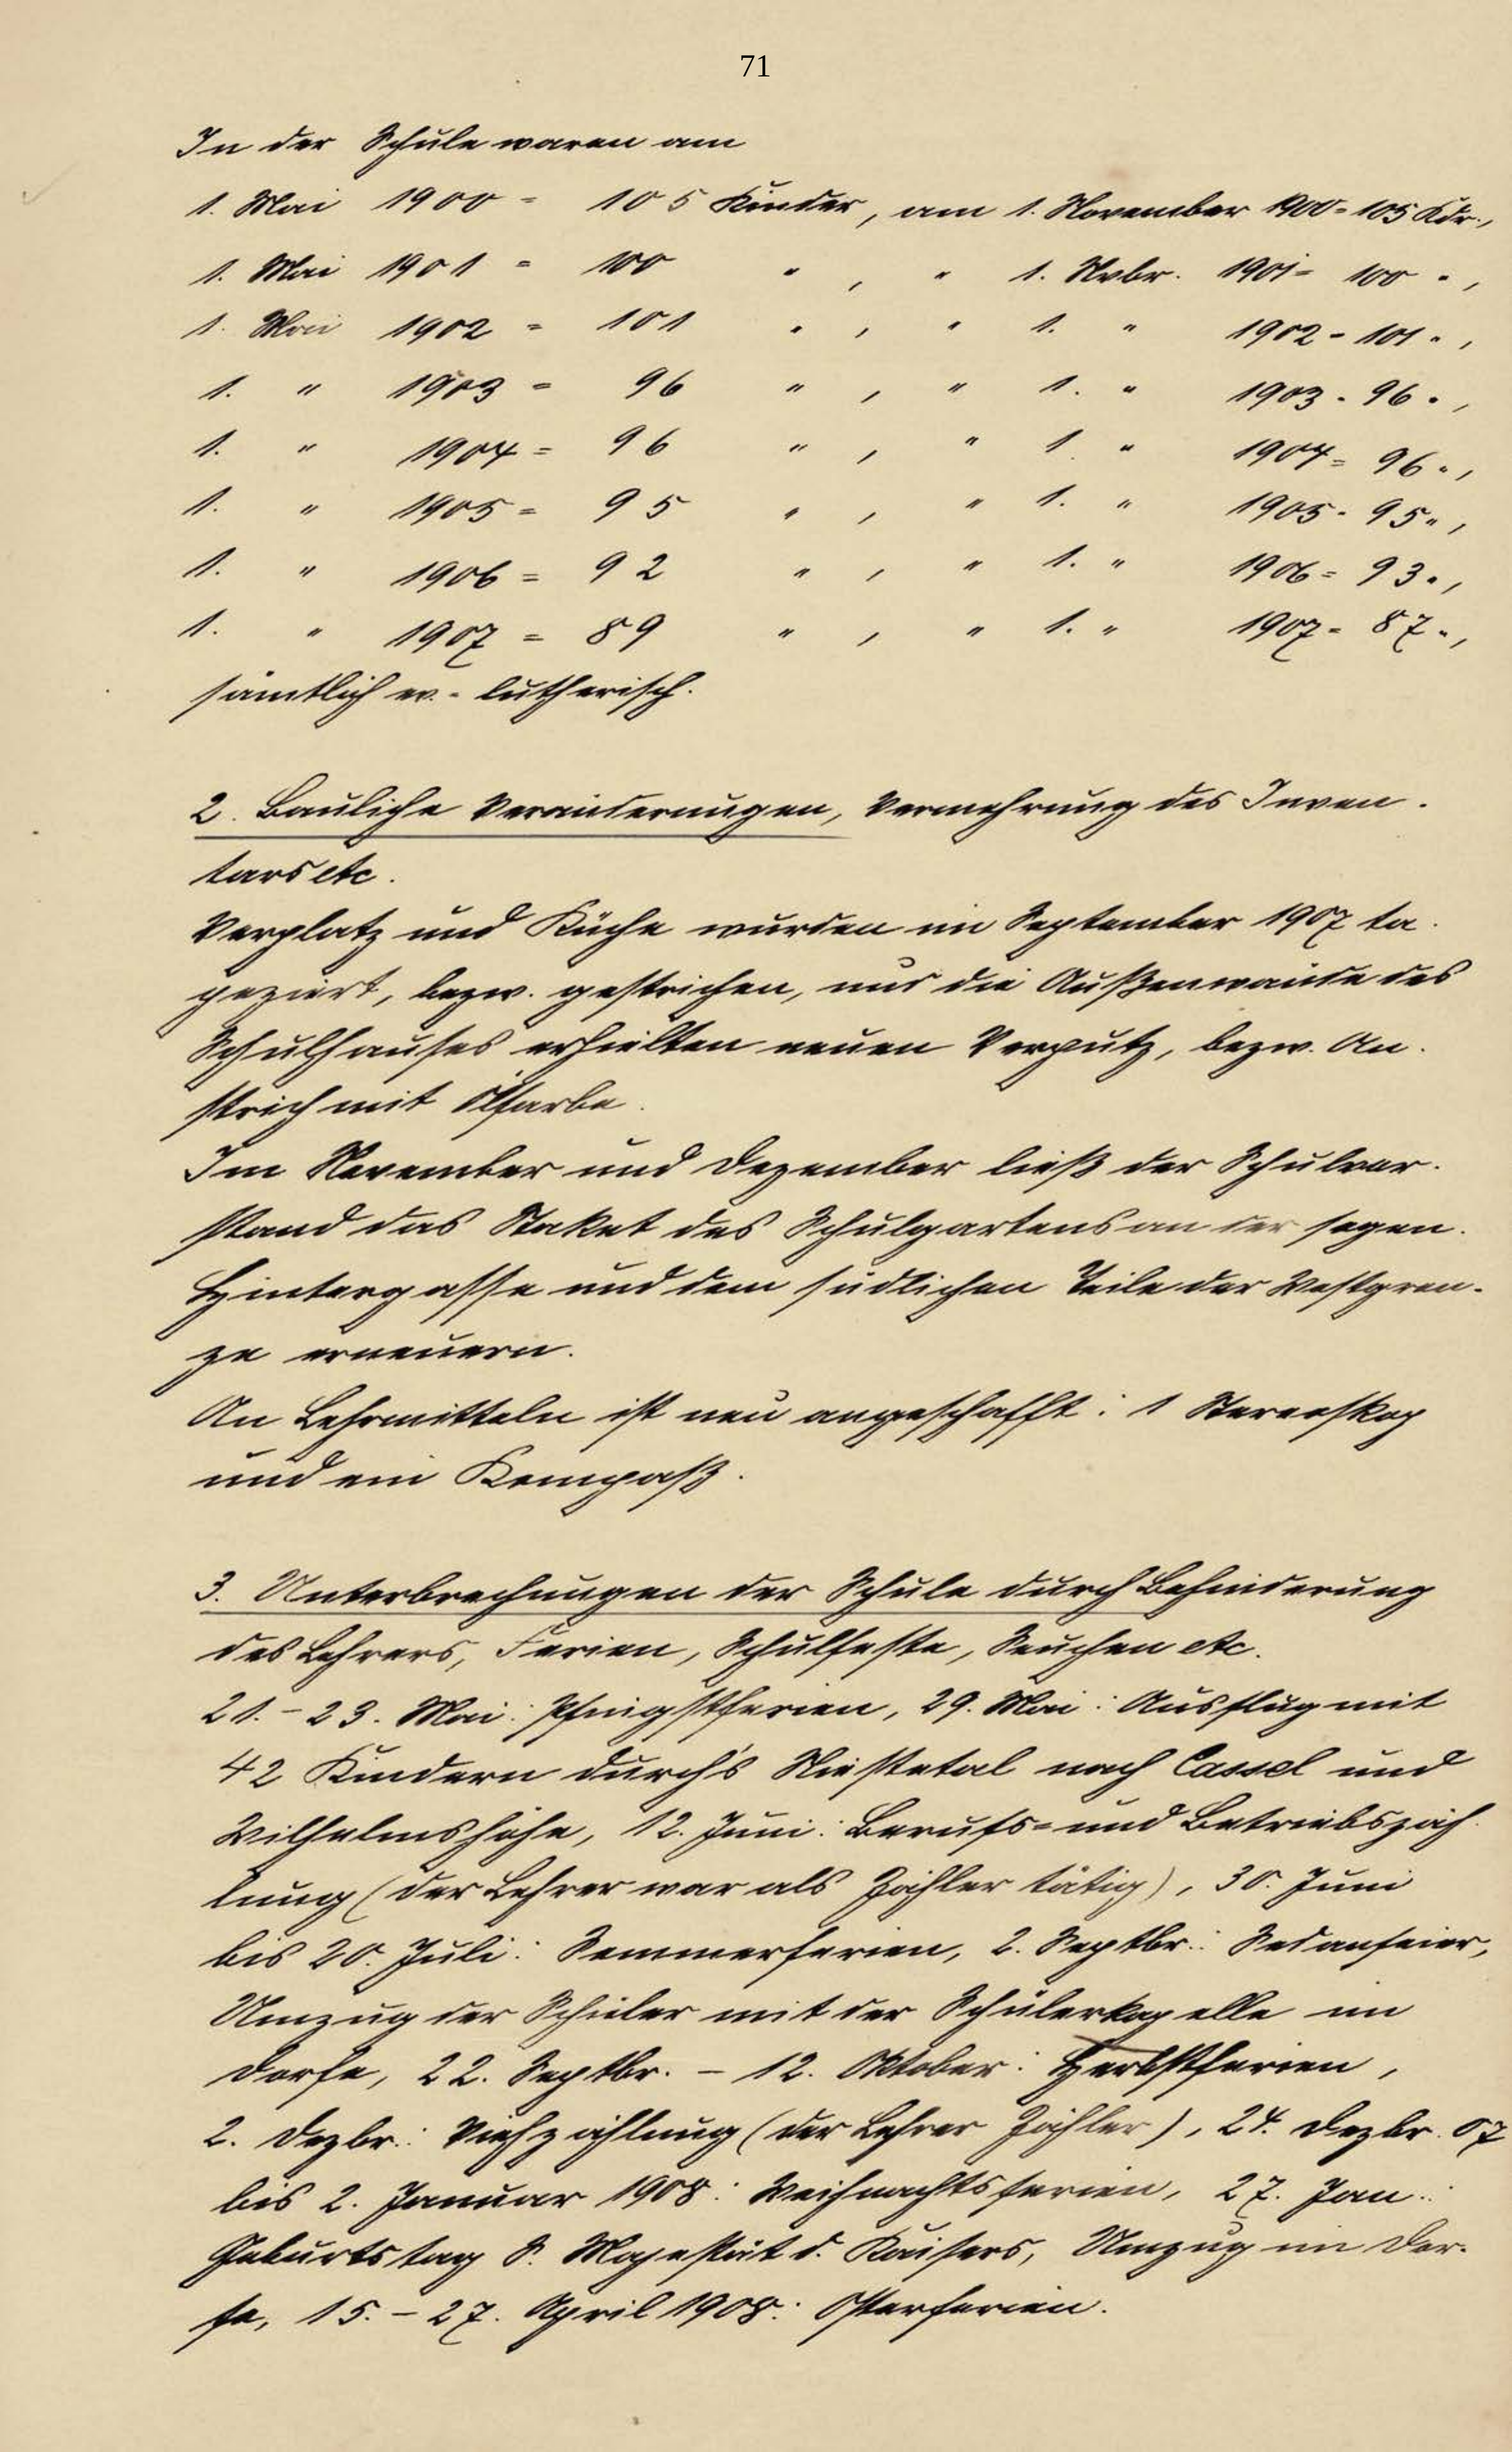 71
In der Schule waren am
1. Mai 1900 = 105 Kinder, am 1. November 1900 = 105 Kdr.,
1. Mai 1901 = 100 " , " 1. Nvbr. 1901 = 100 " ,
1. Mai 1902 = 101 " , " 1. " 1902 = 101 " ,
1. " 1903 = 96 " , " 1. " 1903 = 96 " ,
1. " 1904 = 96 " , " 1. " 1904 = 96 " ,
1. " 1905 = 95 " , " 1. " 1905 = 95 " ,
1. " 1906 = 92 " , " 1. " 1906 = 93 " ,
1. " 1907 = 89 " , " 1. " 1907 = 87 " ,
sämtlich ev.-lutherisch.
2. Bauliche Veränderungen, Vermehrung des Inven-
tars etc.
Vorplatz und Küche wurden im September 1907 ta-
peziert, bezw. gestrichen, und die Außenwände des
Schulhauses erhielten neuen Verputz, bezw. An-
strich mit Ölfarbe.
Im November und Dezember ließ der Schulvor-
stand das Staket des Schulgartens an der sogen.
Hintergasse und dem südlichen Teile der Westgren-
ze erneuern.
An Lehrmitteln ist neu angeschafft: 1 Stereoskop
und ein Kompaß.
3. Unterbrechungen der Schule durch Behinderung
des Lehrers, Ferien, Schulfeste, Seuchen etc.
21. - 23. Mai: Pfingstferien, 29. Mai: Ausflug mit
42 Kindern durch's Niestetal nach Cassel und
Wilhelmshöhe, 12. Juni: Berufs- und Betriebszäh-
lung (der Lehrer war als Zähler tätig), 30. Juni
bis 20. Juli: Sommerferien, 2. Septbr.: Sedanfeier,
Umzug der Schüler mit der Schülerkapelle im
Dorfe, 22. Septbr. - 12. Oktober: Herbstferien,
2. Dezbr.: Viehzählung (der Lehrer Zähler), 24. Dezbr. 07
bis 2. Januar 1908: Weihnachtsferien, 27. Jan.:
Geburtstag S. Majestät d. Kaisers, Umzug im Dor-
fe, 15. - 27. April 1908: Osterferien.